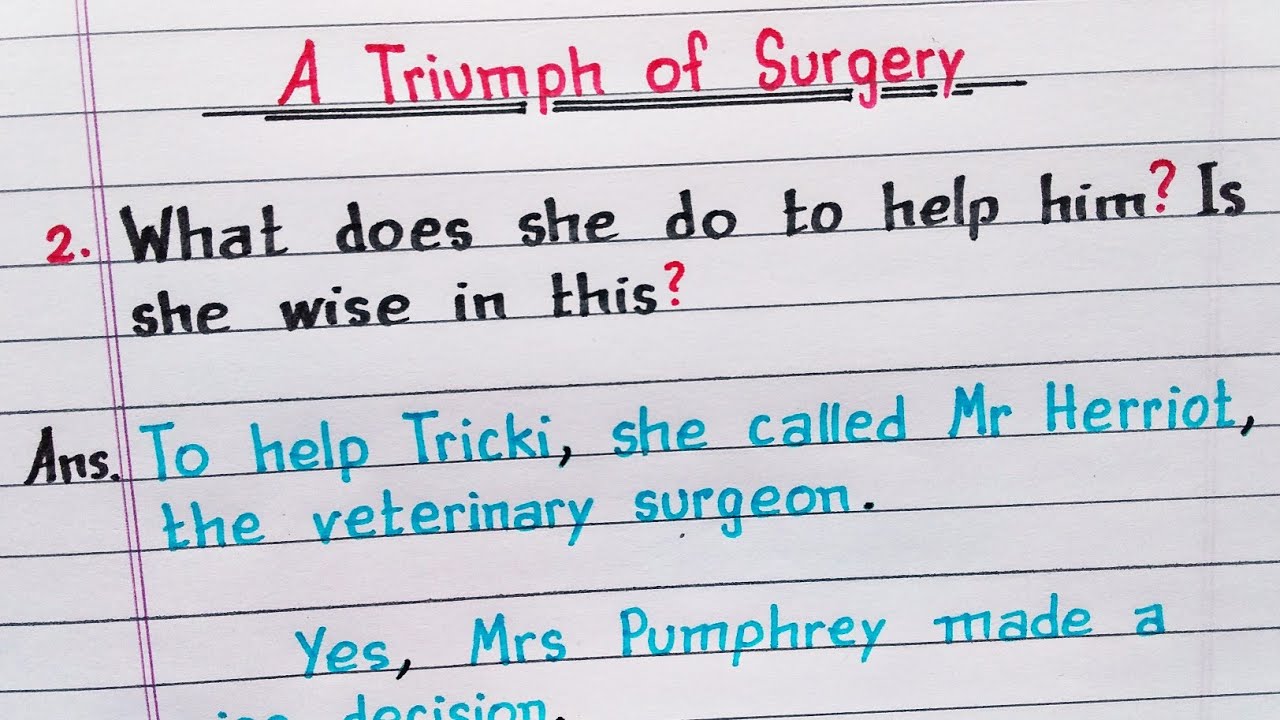 A Triumph of Surgery
2. What does she do to help him? Is
she wise in this?
Ans. To help Tricki, she called Mr Herriot,
the veterinary surgeon.
Yes, Mrs Pumphrey made a
decision.